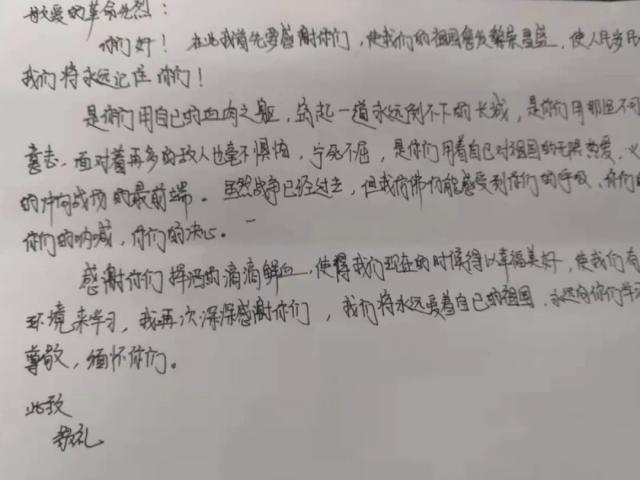 敬爱的革命先烈：
你们好！在此我首先要感谢你们，使我们的祖国愈发繁荣昌盛，使人民安
我们将永远记住你们！
是你们用自己的血肉之躯，筑起一道永远倒不下的长城，是你们用那坦不
意志，面对着再多的敌人也毫不惧怕，宁死不屈，是你们用着自己对祖国的无限热爱，义
的冲向战场的最前端。虽然战争已经过去，但我仿佛仍能感受到你们的呼吸，你们的
你们的呐喊，你们的决心。
感谢你们挥洒的滴滴鲜血，使得我们现在的时候得以幸福美好，使我们有
环境来学习，我再次深深感谢你们，我们将永远爱着自己的祖国，永远向你们学习
尊敬，缅怀你们。
此致
敬礼